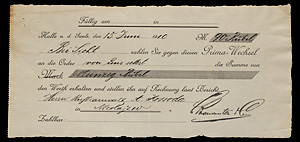 Fällig am in
Halle a. d. Saale, den 15 Juni 1910 M. 90 Rubel
Bei Sicht zahlen Sie gegen diesen Prima-Wechsel
an die Ordre von uns selbst die Summe von
Mark Neunzig Rubel
den Werth erhalten und stellen ihn auf Rechnung laut Bericht
Herrn
in Nicolajew
Zahlbar